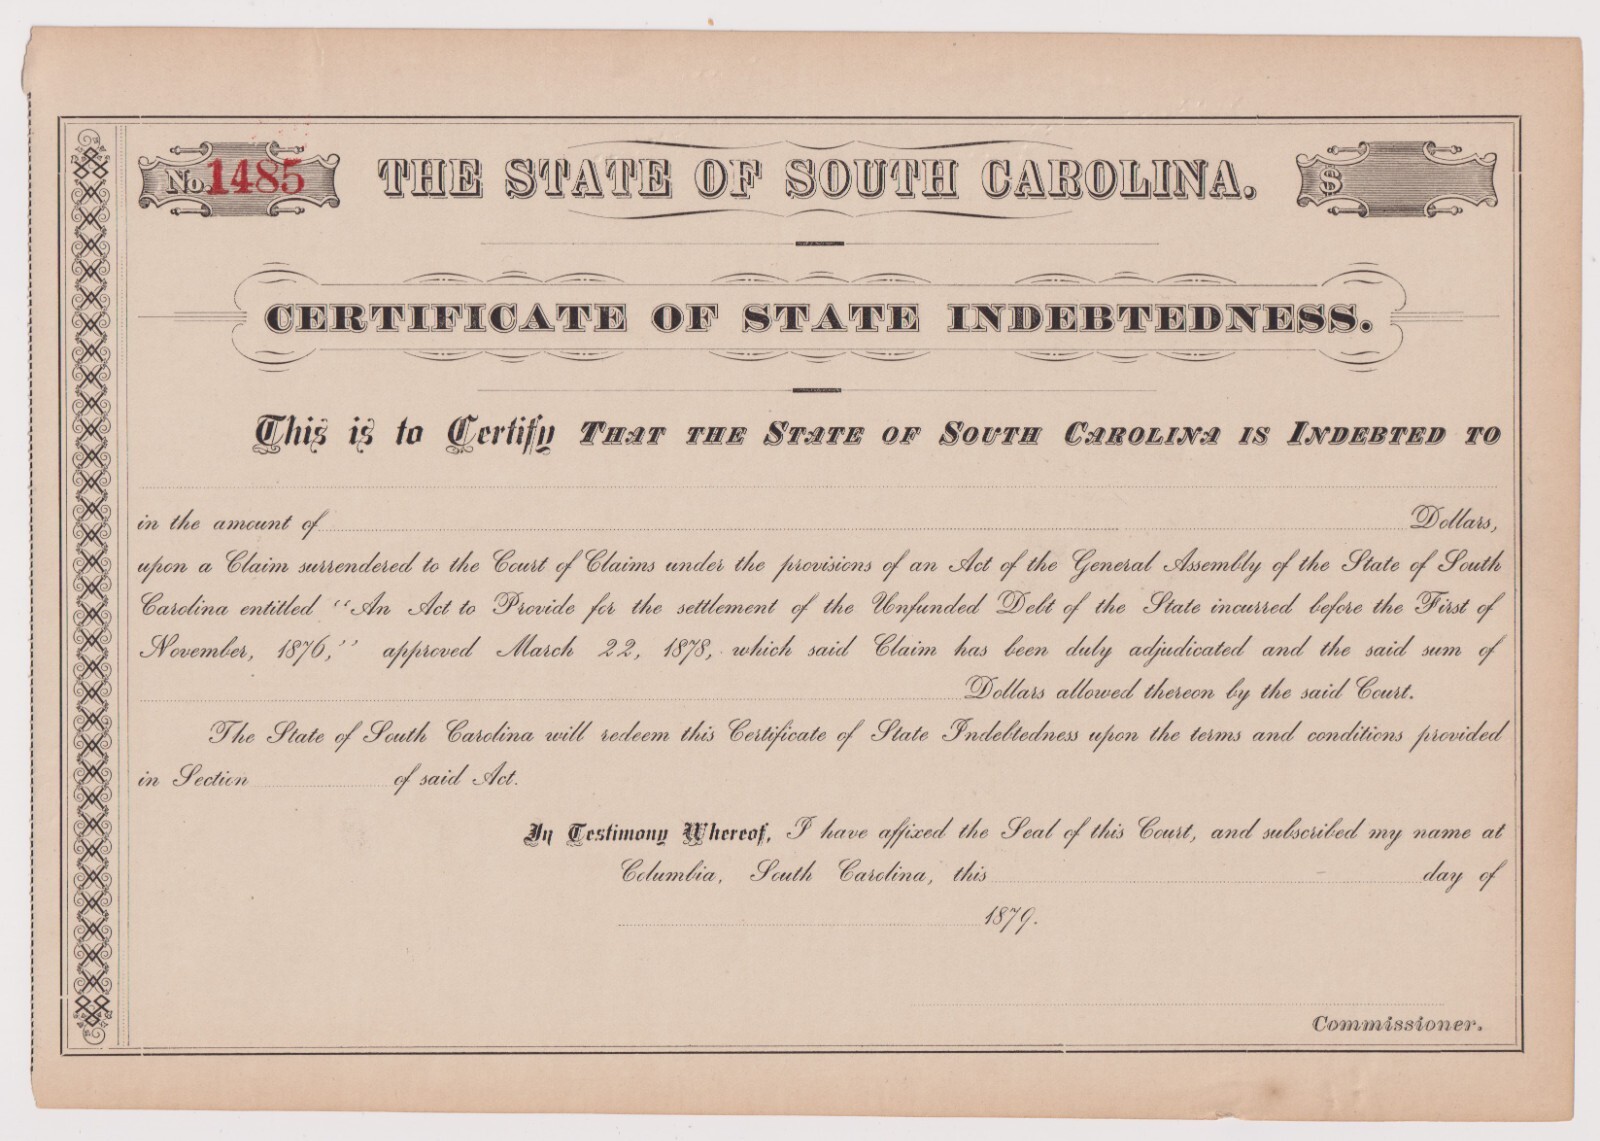 No. 1485 THE STATE OF SOUTH CAROLINA. $
CERTIFICATE OF STATE INDEBTEDNESS.
This is to Certify THAT THE STATE OF SOUTH CAROLINA IS INDEBTED TO
in the amount of Dollars,
upon a Claim surrendered to the Court of Claims under the provisions of an Act of the General Assembly of the State of South
Carolina entitled "An Act to Provide for the settlement of the Unfunded Debt of the State incurred before the First of
November, 1876," approved March 22, 1878, which said Claim has been duly adjudicated and the said sum of
Dollars allowed thereon by the said Court.
The State of South Carolina will redeem this Certificate of State Indebtedness upon the terms and conditions provided
in Section of said Act.
In Testimony Whereof, I have affixed the Seal of this Court, and subscribed my name at
Columbia, South Carolina, this day of
1879.
Commissioner.